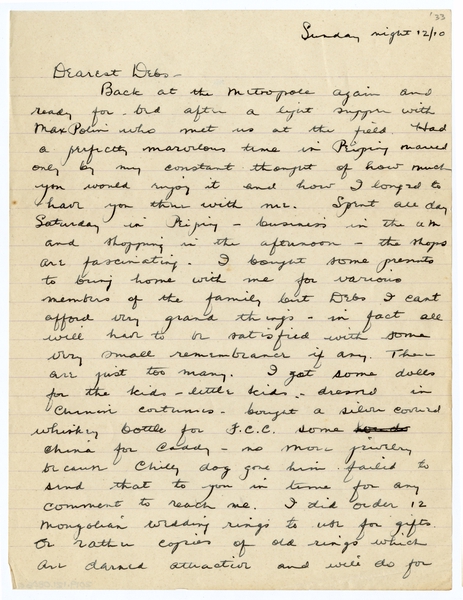 '33
Sunday night 12/10
Dearest Debs -
Back at the Metropole again and
ready for bed after a light supper with
Max Polin who met us at the field. Had
a perfectly marvelous time in Peiping marred
only by my constant thought of how much
you would enjoy it and how I longed to
have you there with me. Spent all day
Saturday in Peiping - business in the a.m
and shopping in the afternoon - the shops
are fascinating. I bought some presents
to bring home with me for various
members of the family but Debs I cant
afford very grand things - in fact all
will have to be satisfied with some
very small remembrance if any. There
are just too many. I got some dolls
for the kids - little kids - dressed in
Chinese costumes - bought a silver covered
whiskey bottle for F.C.C. some
china for Caddy - no more jewelry
because Chilly dog gone him failed to
send that to you in time for any
comment to reach me. I did order 12
Mongolian wedding rings to use for gifts.
Or rather copies of old rings which
are darned attractive and will do for